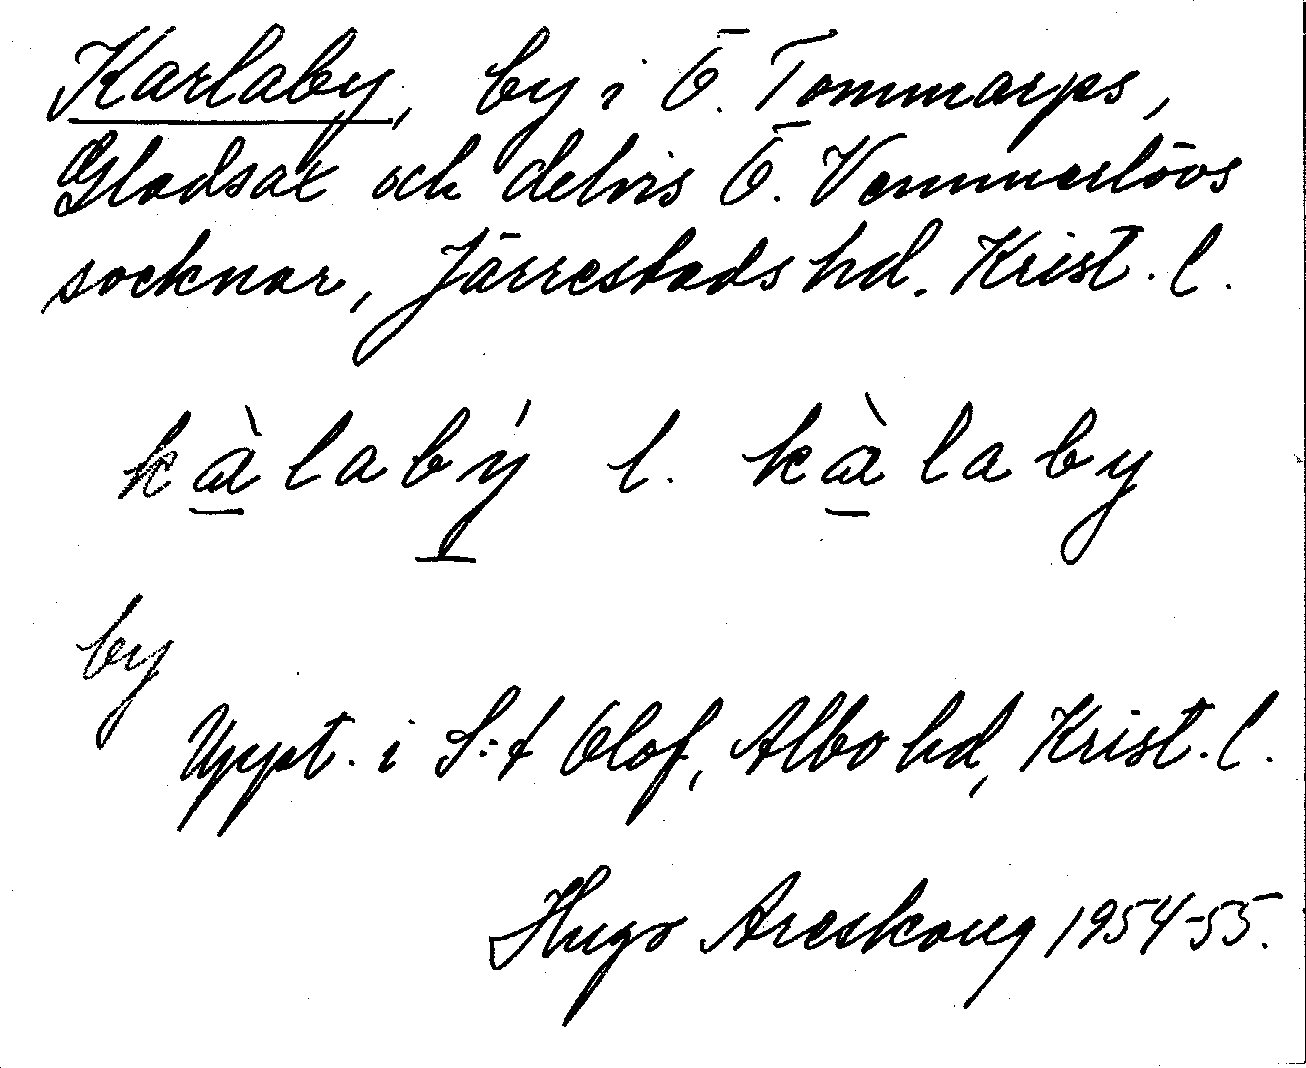 Karlaby, by i Ö. Tommarps,
Gladsax och delvis Ö. Vemmerlövs
socknar, Järrestads hd. Krist. l.
kàlabý l. kàlaby
by
Uppt. i S:t Olof, Albo hd, Krist. l.
Hugo Areskoug 1954-55.